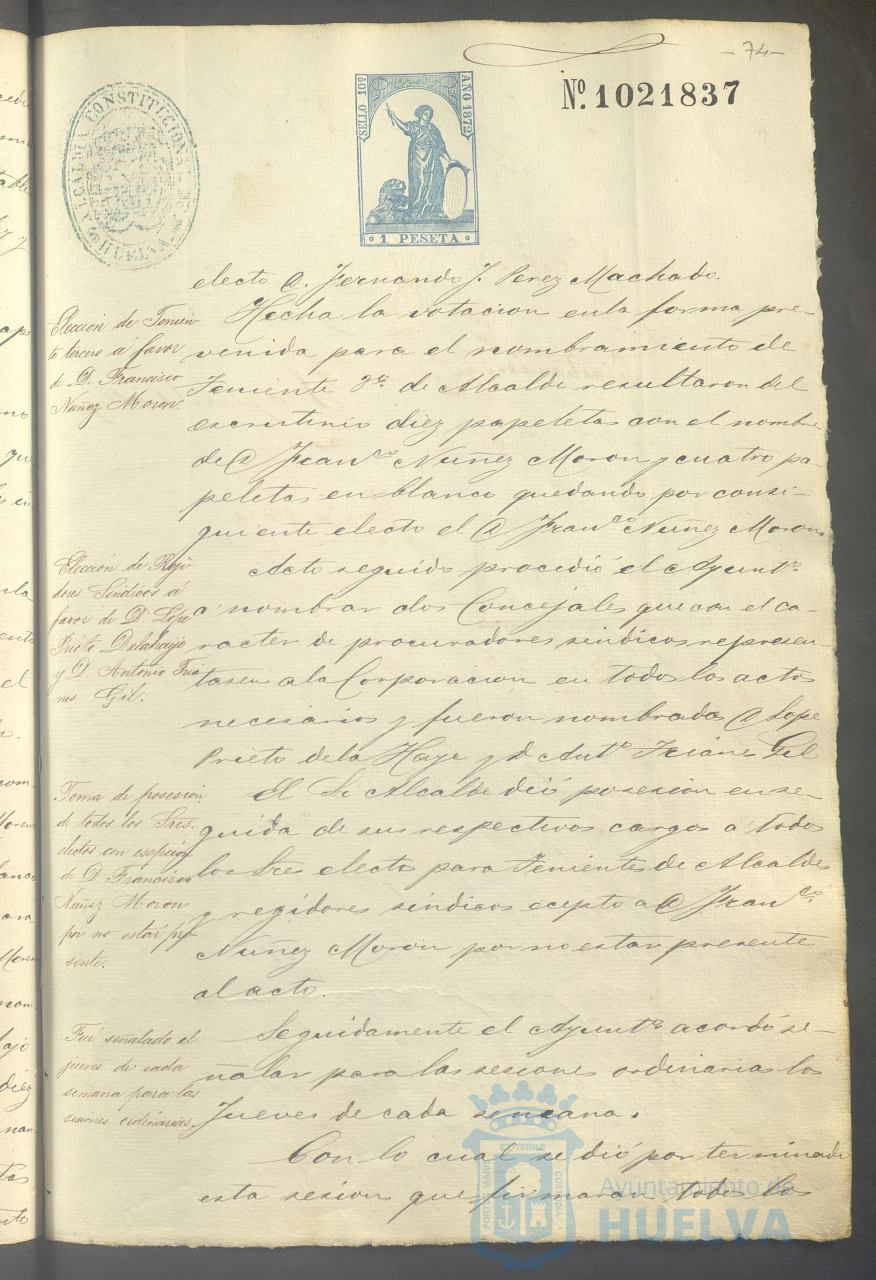 - 74 -
ALCALDIA CONSTITUCIONAL DE HUELVA
SELLO 10º
AÑO 1872
1 PESETA
Nº. 1021837
electo D. Fernando J. Perez Machado.
Elección de Tenien-
te tercero á favor
de D. Francisco
Nuñez Moron.
Hecha la votacion en la forma pre-
venida para el nombramiento de
Teniente 3º de Alcalde resultaron del
escrutinio diez papeletas con el nombre
de D Franco Nuñez Moron y cuatro pa-
peletas en blanco quedando por consi-
guiente electo el D Franco Nuñez Moron
Elección de Reji-
dores Sindicos á
favor de D Lope
Prieto Delahajo
y D Antonio Tria
nes Gil.
Acto seguido procedió el Ayunto
á nombrar dos Concejales que con el ca-
racter de procuradores sindicos represen-
tasen a la Corporacion en todos los actos
necesarios y fueron nombrados D Lope
Prieto de la Haye y D Anto Trianes Gil
Toma de posesion
de todos los Sres.
electos con esepcion
de D. Francisco
Nuñez Moron
por no estar pre
sente.
El Sr Alcalde dió posesion ense-
guida de sus respectivos cargos a todos
los Sres electo para Tenientes de Alcaldes
y regidores sindicos ecepto a D Franco
Nuñez Moron por no estar presente
al acto.
Fué señalado el
jueves de cada
semana para las
sesiones ordinarias.
Seguidamente el Ayunto acordó se-
ñalar para las sesiones ordinarias los
Jueves de cada semana.
Con lo cual se dió por terminada
esta sesion que firmaran todos los
PORTUS MARIS ET TERRÆ CUSTODIA
Ayuntamiento de
HUELVA